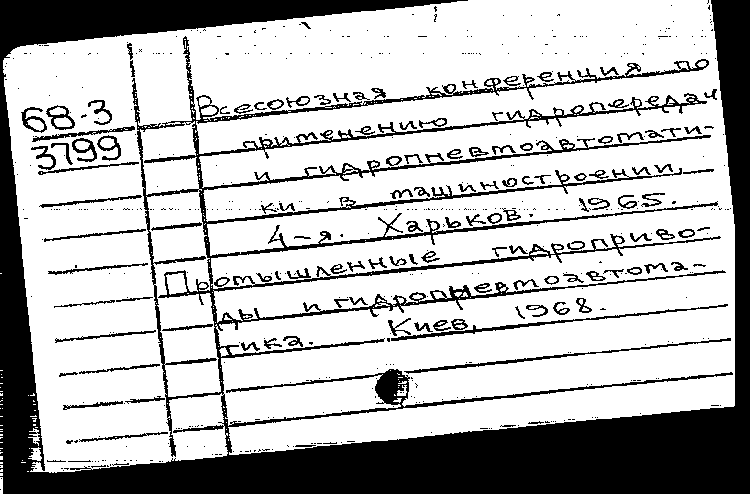 68-3
3799
Всесоюзная конференция по
применению гидропередач
и гидропневмоавтомати-
ки в машиностроении,
4-я. Харьков. 1965.
Промышленные гидроприво-
ды и гидропневмоавтома-
тика. Киев, 1968.